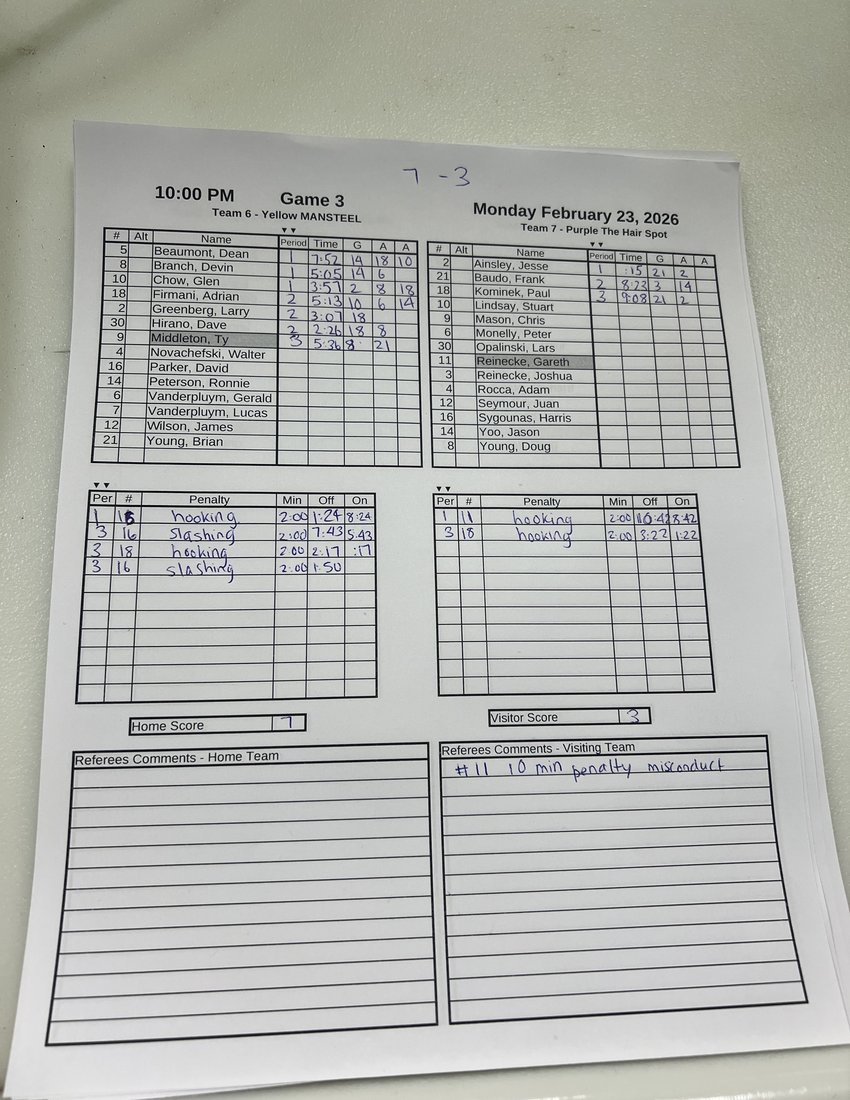 7 - 3
10:00 PM Game 3 Monday February 23, 2026
Team 6 - Yellow MANSTEEL
Team 7 - Purple The Hair Spot
# Alt Name Period Time G A A
5 Beaumont, Dean 1 7:52 14 18 10
8 Branch, Devin 1 5:05 14 6
10 Chow, Glen 1 3:57 2 8 18
18 Firmani, Adrian 2 5:13 10 6 14
2 Greenberg, Larry 2 3:07 18
30 Hirano, Dave 2 2:26 18 8
9 Middleton, Ty 3 5:36 8 21
4 Novachefski, Walter
16 Parker, David
14 Peterson, Ronnie
6 Vanderpluym, Gerald
7 Vanderpluym, Lucas
12 Wilson, James
21 Young, Brian
# Alt Name Period Time G A A
2 Ainsley, Jesse 1 :15 21 2
21 Baudo, Frank 2 8:23 3 14
18 Kominek, Paul 3 9:08 21 2
10 Lindsay, Stuart
9 Mason, Chris
6 Monelly, Peter
30 Opalinski, Lars
11 Reinecke, Gareth
3 Reinecke, Joshua
4 Rocca, Adam
12 Seymour, Juan
16 Sygounas, Harris
14 Yoo, Jason
8 Young, Doug
Per # Penalty Min Off On
1 hooking 2:00 1:24 8:24
3 16 slashing 2:00 7:43 5:43
3 18 hooking 2:00 2:17 :17
3 16 slashing 2:00 1:50
Per # Penalty Min Off On
1 11 hooking 2:00 10:42 8:42
3 18 hooking 2:00 3:22 1:22
Home Score 7
Visitor Score 3
Referees Comments - Home Team
Referees Comments - Visiting Team
#11 10 min penalty misconduct